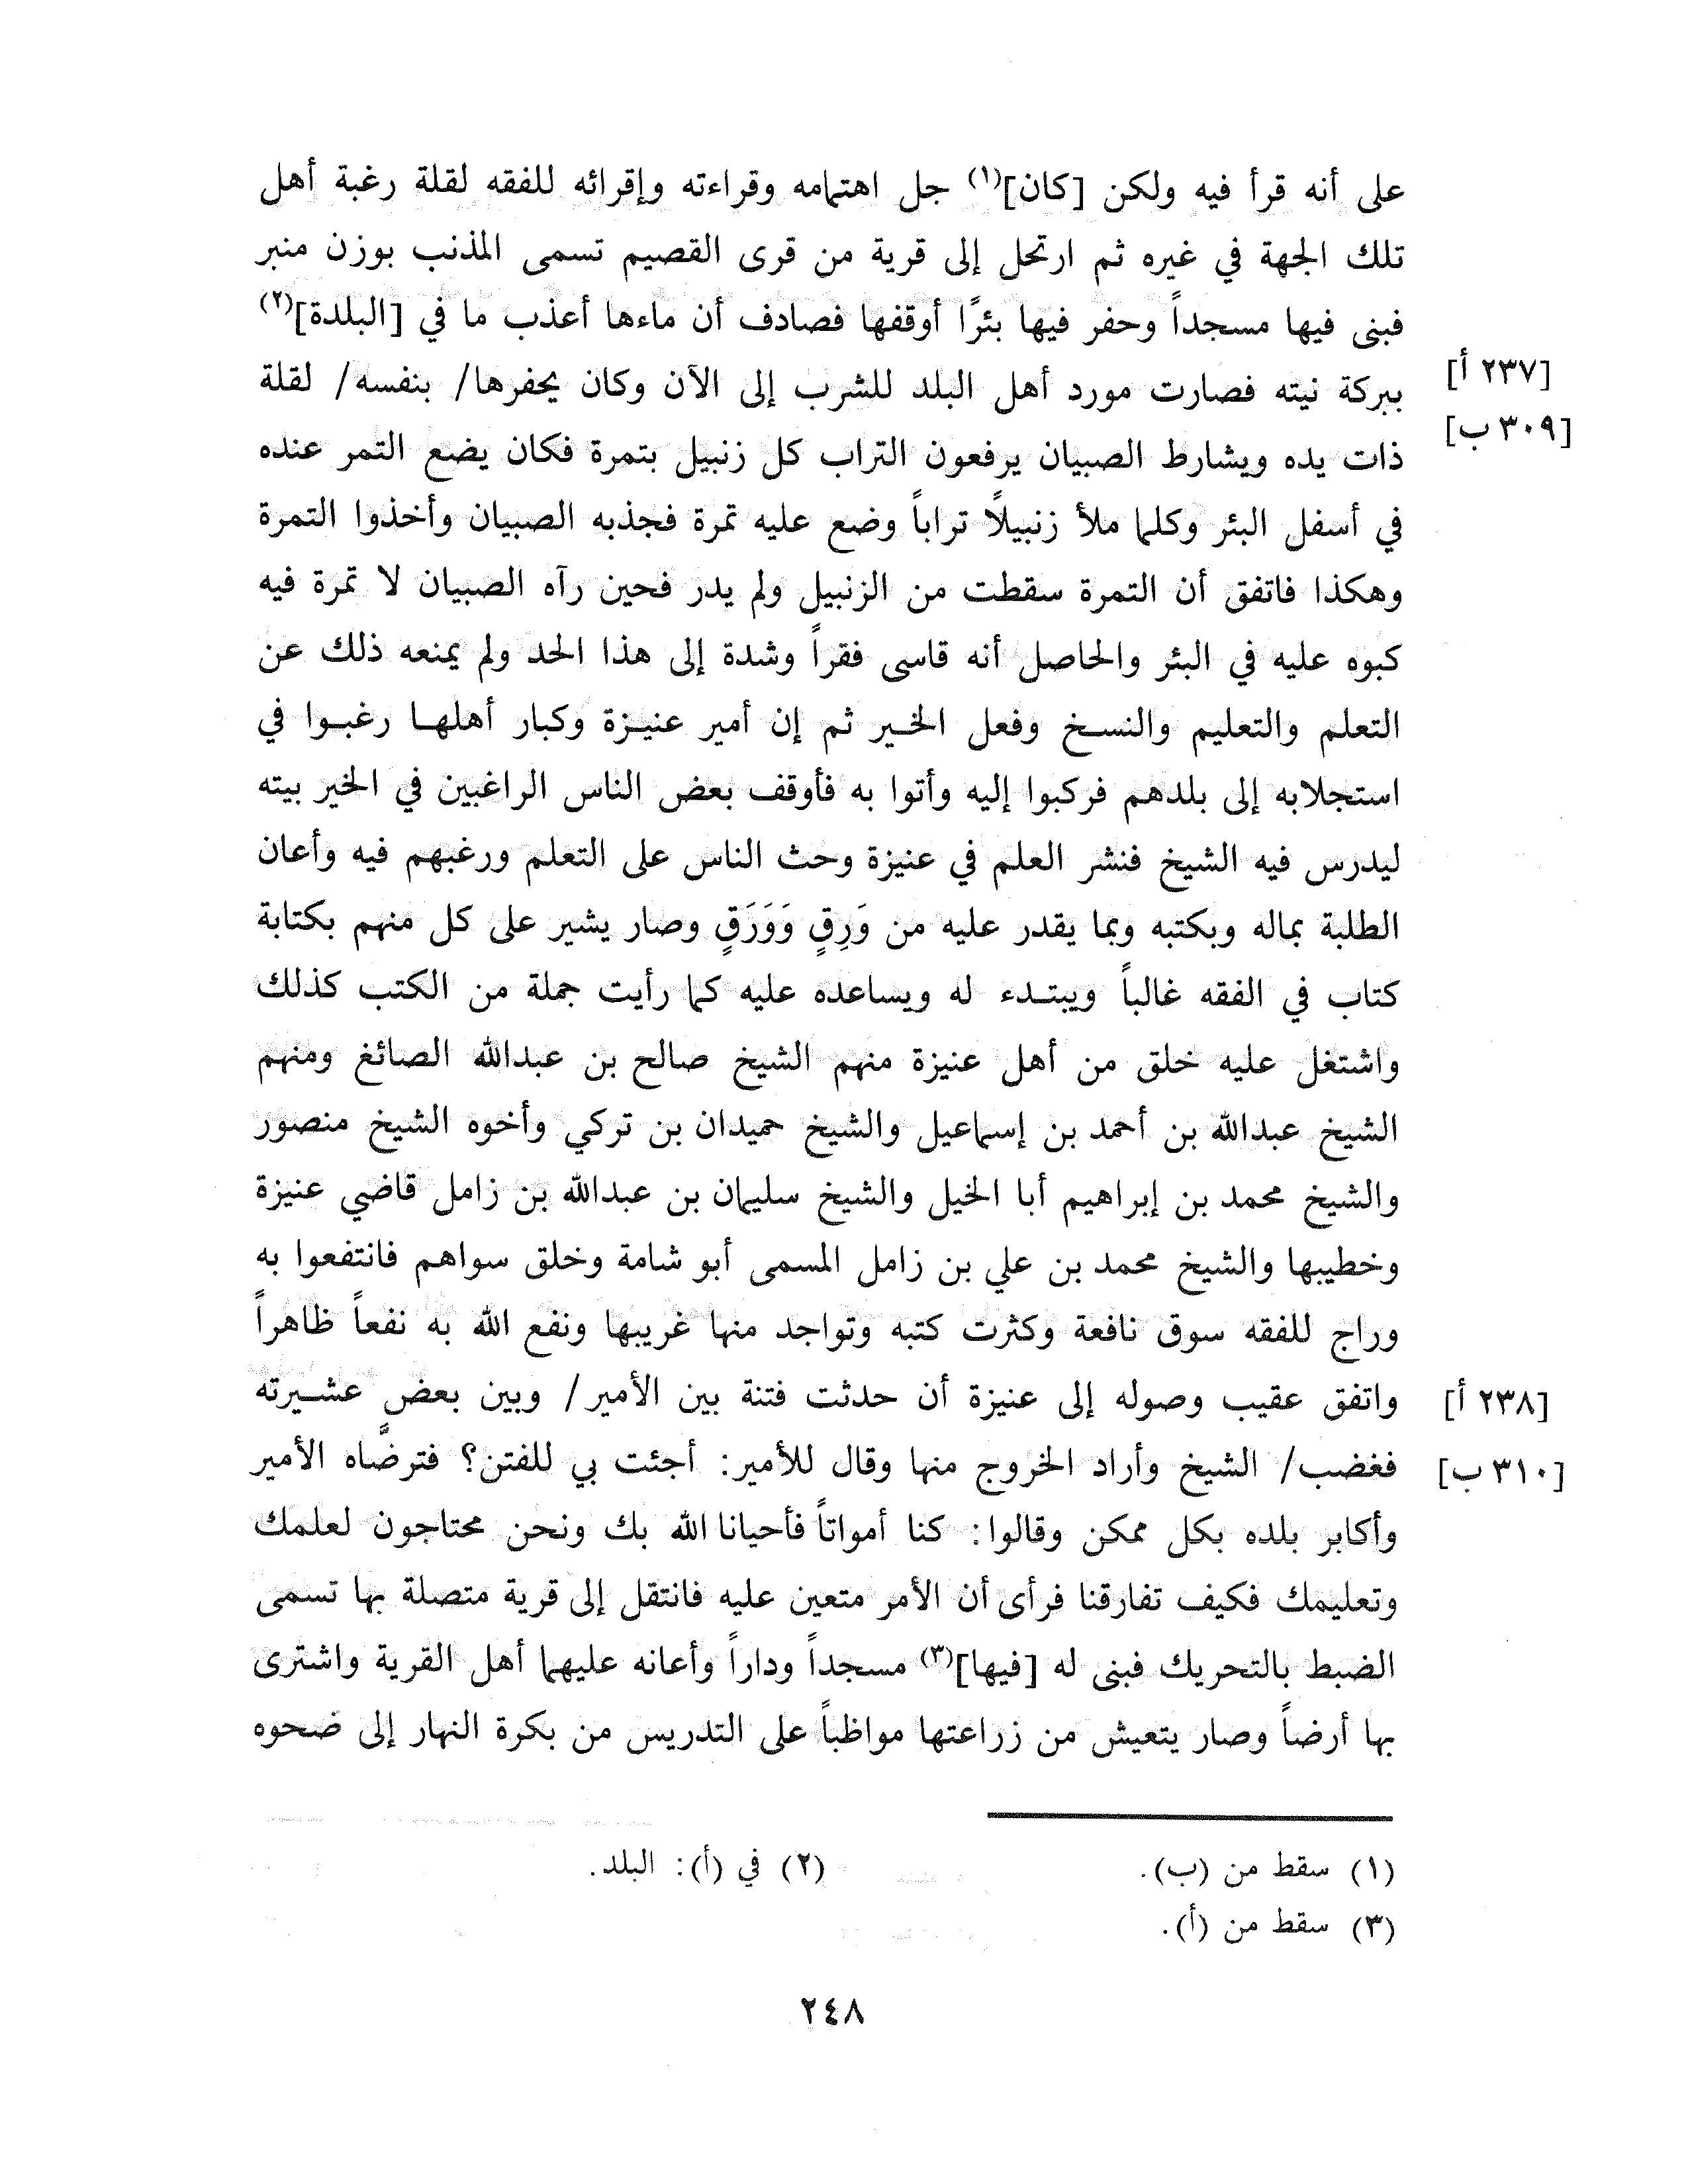 على أنه قرأ فيه ولكن [كان](١) جل اهتمامه وقراءته وإقرائه للفقه لقلة رغبة أهل
تلك الجهة في غيره ثم ارتحل إلى قرية من قرى القصيم تسمى المذنب بوزن منبر
فبنى فيها مسجداً وحفر فيها بئرًا أوقفها فصادف أن ماءها أعذب ما في [البلدة](٢)
[٢٣٧ أ]
ببركة نيته فصارت مورد أهل البلد للشرب إلى الآن وكان يحفرها/ بنفسه/ لقلة
[٣٠٩ ب]
ذات يده ويشارط الصبيان يرفعون التراب كل زنبيل بتمرة فكان يضع التمر عنده
في أسفل البئر وكلما ملأ زنبيلًا تراباً وضع عليه تمرة فجذبه الصبيان وأخذوا التمرة
وهكذا فاتفق أن التمرة سقطت من الزنبيل ولم يدر فحين رآه الصبيان لا تمرة فيه
كبوه عليه في البئر والحاصل أنه قاسى فقراً وشدة إلى هذا الحد ولم يمنعه ذلك عن
التعلم والتعليم والنسخ وفعل الخير ثم إن أمير عنيزة وكبار أهلها رغبوا في
استجلابه إلى بلدهم فركبوا إليه وأتوا به فأوقف بعض الناس الراغبين في الخير بيته
ليدرس فيه الشيخ فنشر العلم في عنيزة وحث الناس على التعلم ورغبهم فيه وأعان
الطلبة بماله وبكتبه وبما يقدر عليه من وَرِقٍ وَوَرَقٍ وصار يشير على كل منهم بكتابة
كتاب في الفقه غالباً ويبتدء له ويساعده عليه كما رأيت جملة من الكتب كذلك
واشتغل عليه خلق من أهل عنيزة منهم الشيخ صالح بن عبدالله الصائغ ومنهم
الشيخ عبدالله بن أحمد بن إسماعيل والشيخ حميدان بن تركي وأخوه الشيخ منصور
والشيخ محمد بن إبراهيم أبا الخيل والشيخ سليمان بن عبدالله بن زامل قاضي عنيزة
وخطيبها والشيخ محمد بن علي بن زامل المسمى أبو شامة وخلق سواهم فانتفعوا به
وراج للفقه سوق نافعة وكثرت كتبه وتواجد منها غريبها ونفع الله به نفعاً ظاهراً
[٢٣٨ أ]
واتفق عقيب وصوله إلى عنيزة أن حدثت فتنة بين الأمير/ وبين بعضٍ عشيرته
[٣١٠ ب]
فغضب/ الشيخ وأراد الخروج منها وقال للأمير: أجئت بي للفتن؟ فترضَّاه الأمير
وأكابر بلده بكل ممكن وقالوا: كنا أمواتاً فأحيانا الله بك ونحن محتاجون لعلمك
وتعليمك فكيف تفارقنا فرأى أن الأمر متعين عليه فانتقل إلى قرية متصلة بها تسمى
الضبط بالتحريك فبنى له [فيها](٣) مسجداً وداراً وأعانه عليهما أهل القرية واشترى
بها أرضاً وصار يتعيش من زراعتها مواظباً على التدريس من بكرة النهار إلى ضحوه
(١) سقط من (ب).
(٢) في (أ): البلد.
(٣) سقط من (أ).
٢٤٨